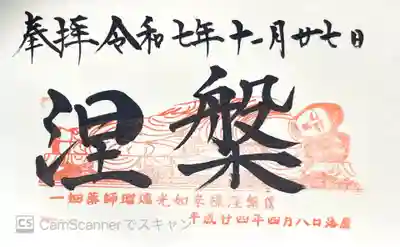 奉拝 令和七年十一月廿七日
涅槃
一畑薬師瑠璃光如来寝涅槃像
平成廿四年四月八日落慶
CS CamScannerでスキャン